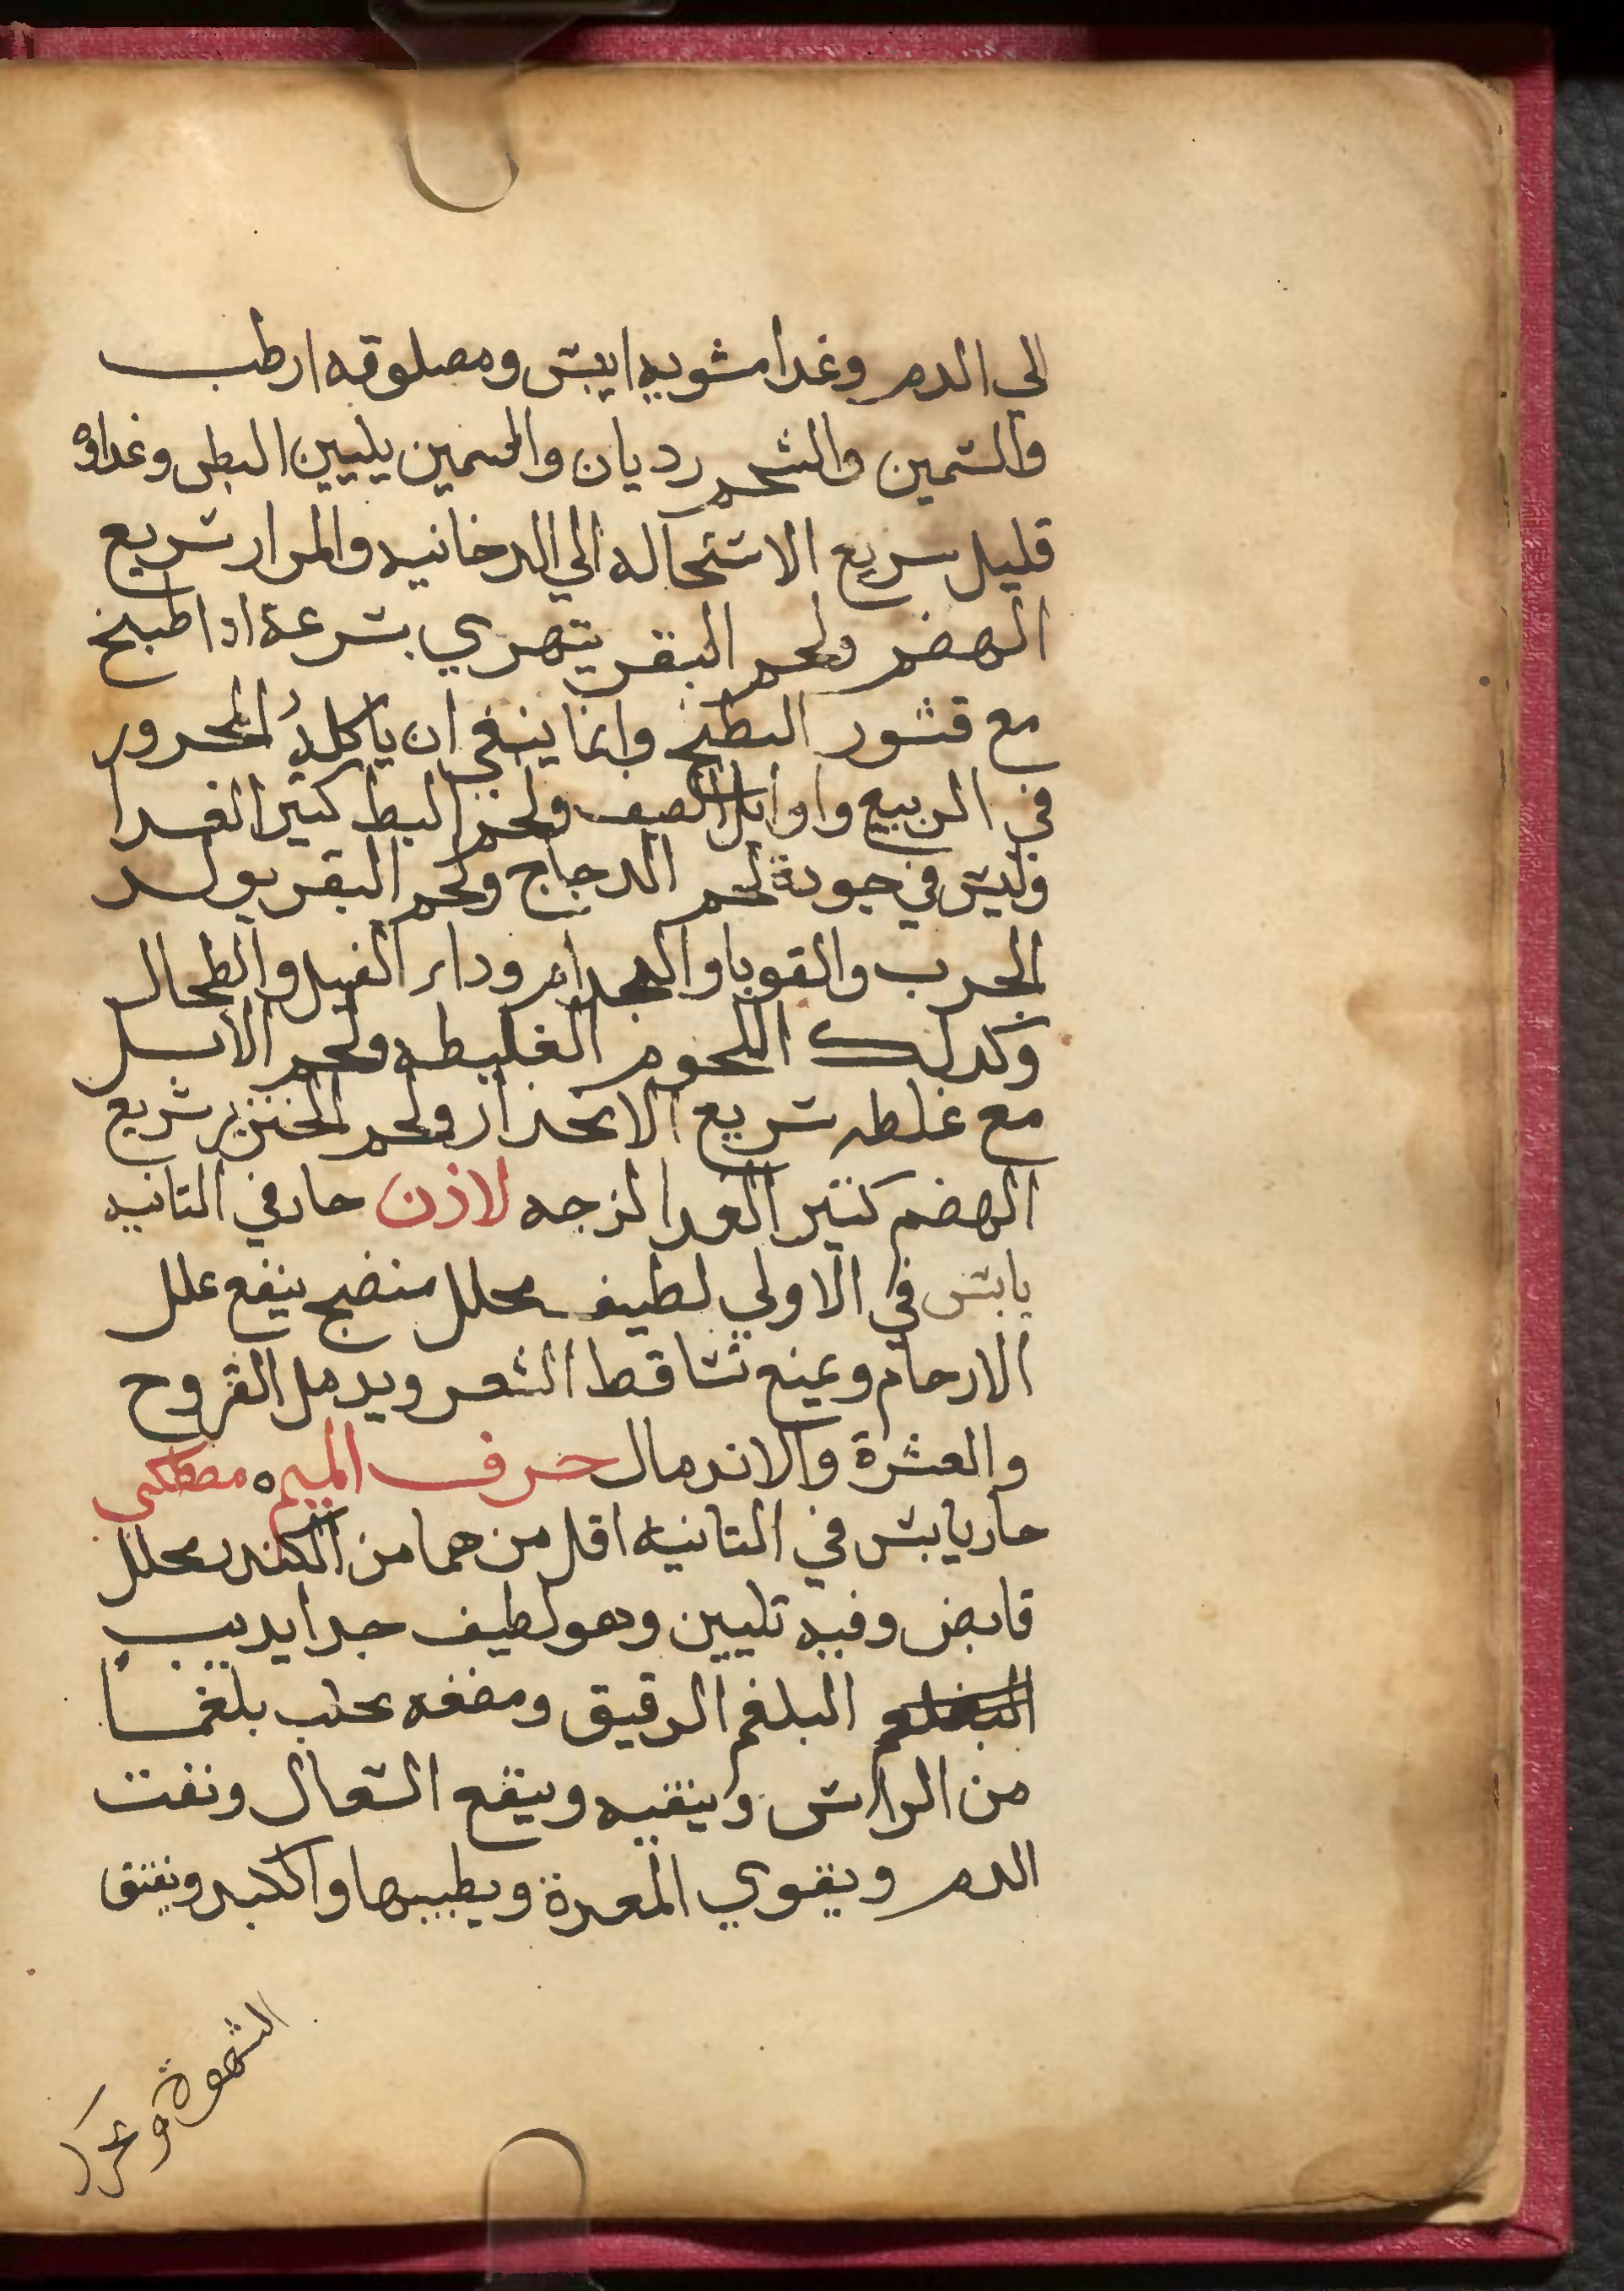 الى الدم وغدا مشويه ايبس ومصلوقه ارطب
والسمين والشحم رديان والسمين يليين البطن وغداوه
قليل سريع الاستحاله الي الدخانيه والمرار سريع
الهضم ولحم البقر يتهري بسرعة ادا طبخ
مع قشور البطيخ وانما ينبغي ان ياكلهُ المحرور
في الربيع واوايل الصيف ولحم البط كتير الغدا
وليس في جودة لحم الدجاج ولحم البقر يولد
الجرب والقوبا والجدام وداء الفيل والطحال
وكدلك اللحوم الغليظه ولحم الابل
مع غلظه سريع الانحدار ولحم الخنزير سريع
الهضم كتير الغدا لزجه لاذن حار في التانيه
يابس في الاولي لطيف محلل منضج ينفع علل
الارحام ويمنع تساقط الشعر ويدمل القروح
والعشرة والاندمال حرف الميم ٥ مصطكى
حار يابس في التانيه اقل من هما من الكندر محلل
قابض وفيه تليين وهو لطيف جدا يديب
البلغم الرقيق ومضغه يجلب بلغما
من الراس وينقيه وينفع السعال ونفت
الدم ويقوي المعدة ويطيبها والكبد ويفتق
الشهوة